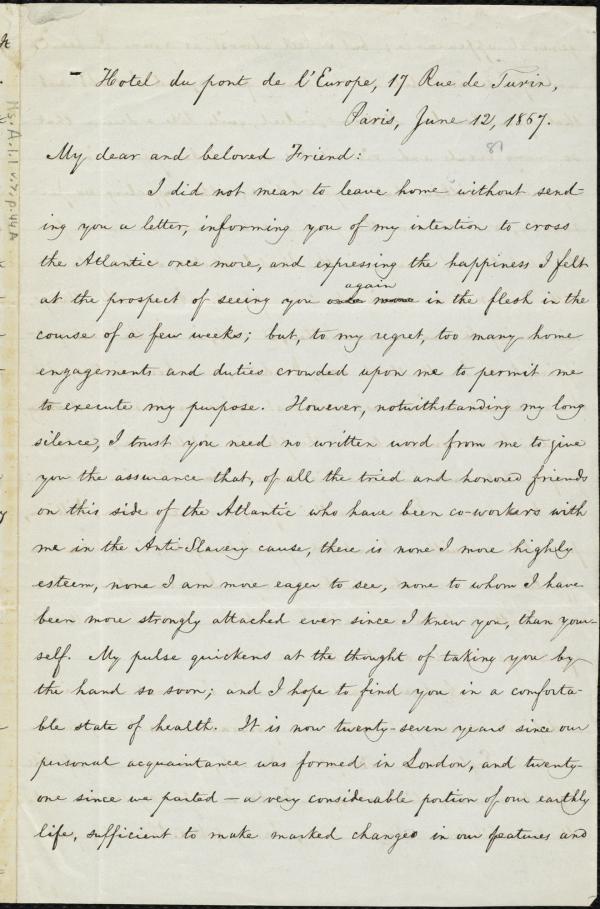 - Hotel du pont de l'Europe, 17 Rue de Turin,
Paris, June 12, 1867.
87
My dear and beloved Friend:
I did not mean to leave home without send-
ing you a letter, informing you of my intention to cross
the Atlantic once more, and expressing the happiness I felt
again
at the prospect of seeing you once more in the flesh in the
course of a few weeks; but, to my regret, too many home
engagements and duties crowded upon me to permit me
to execute my purpose. However, notwithstanding my long
silence, I trust you need no written word from me to give
you the assurance that, of all the tried and honored friends
on this side of the Atlantic who have been co-workers with
me in the Anti-Slavery cause, there is none I more highly
esteem, none I am more eager to see, none to whom I have
been more strongly attached ever since I knew you, than your-
self. My pulse quickens at the thought of taking you by
the hand so soon; and I hope to find you in a comforta-
ble state of health. It is now twenty-seven years since our
personal acquaintance was formed in London, and twenty-
one since we parted — a very considerable portion of our earthly
life, sufficient to make marked changes in our features and
Ms. A. 1. 1 v. 7, p. 44A